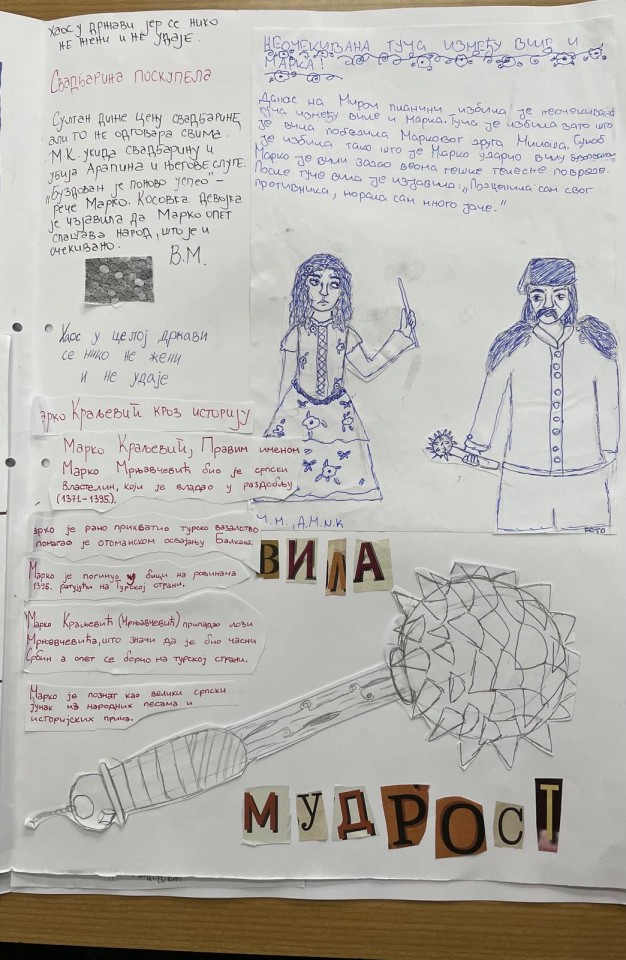 Хаос у држави јер се нико
не жени и не удаје.
Свадбарина поскупела
Султан диже цену свадбарине
али то не одговара свима.
М.К. укида свадбарину и
убија Арапина и његове слуге.
„Буздован је поново успео" –
рече Марко. Косовка девојка
је изјавила да Марко опет
спашава народ, што је и
очекивано.
В.М.
Хаос у целој држави
се нико не жени
и не удаје
арко Краљевић кроз историју
Марко Краљевић, Правим именом
Марко Мрњавчевић био је српски
Властелин, који је владао у раздобљу
(1371-1395.).
арко је рано прихватио турско вазалство
помагао је отоманском освајању Балкана.
Марко је погинуо у бици на ровинама
1395. ратујући на Турској страни.
Марко Краљевић (Мрњавчевић) припадао лози
Мрњавчевића, што значи да је био часни
Србин а опет се борио на турској страни.
Марко је познат као велики српски
јунак из народних песама и
историјских прича.
НЕОЧЕКИВАНА ТУЧА ИЗМЕЂУ ВИЛЕ И
МАРКА!
Данас на Мироч планини избила је неочекивана
туча између виле и Марка. Туча је избила зато што
је вила победила Марковог друга Милоша. Сукоб
је избила тако што је Марко ударио вилу
Марко је вили задао веома тешке телесне повреде.
После туче вила је изјавила: „Потценила сам свог
противника, морала сам много јаче."
Ч.М., А.М. и К
FOTO
ВИЛА
МУДРОСТ